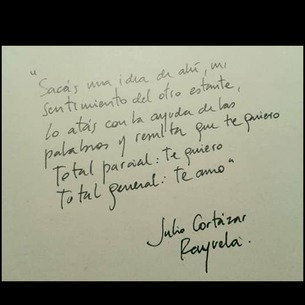 "Sacás una idea de ahí, un
sentimiento del otro estante,
lo atás con la ayuda de las
palabras y resulta que te quiero
Total parcial: te quiero
Total general: te amo"
Julio Cortázar
Rayuela.